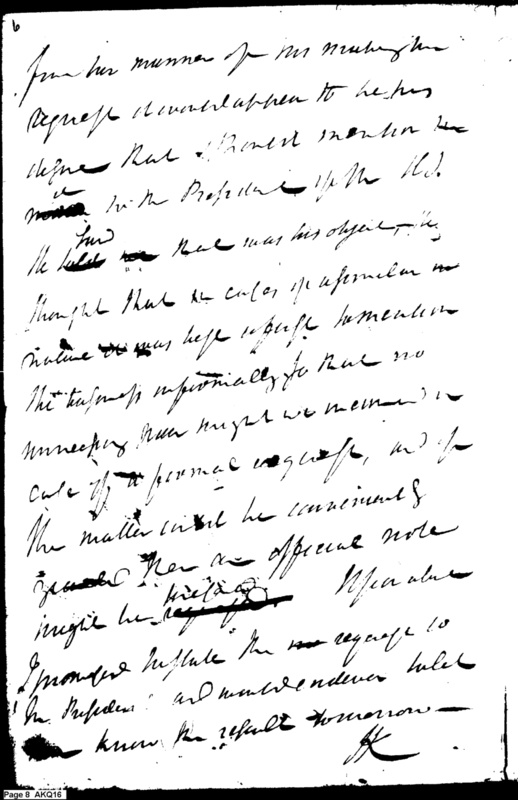 6
from his manner of his making the
request it would appear to be his
desire that I should mention
it to the President of the U.S.
He said that was his object, he
thought that in cases of a similar
nature it was best first to mention
the business informally so that no
unnecessary noise might be incurred in
case of a formal request, and if
the matter could be conveniently
then an official note
might be
I promised to state the request to
the President and would endeavor to let
know the result tomorrow—
Page 8 AKQ16